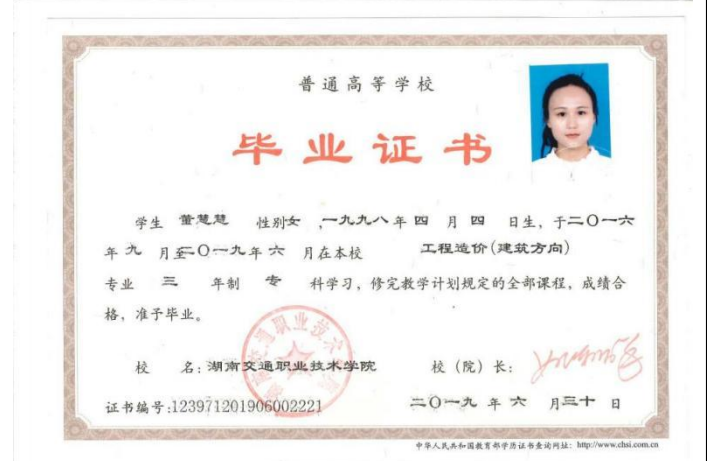 普通高等学校
毕业证书
学生 董慧慧 性别女 ,一九九八年 四 月 四 日生，于二〇一六
年 九 月至二〇一九年 六 月在本校 工程造价(建筑方向)
专业 三 年制 专 科学习，修完教学计划规定的全部课程，成绩合
格，准予毕业。
校 名：湖南交通职业技术学院 校（院）长：
证书编号:123971201906002221 二〇一九 年 六 月三十 日
湖南交通职业技术学院
中华人民共和国教育部学历证书查询网址：http://www.chsi.com.cn